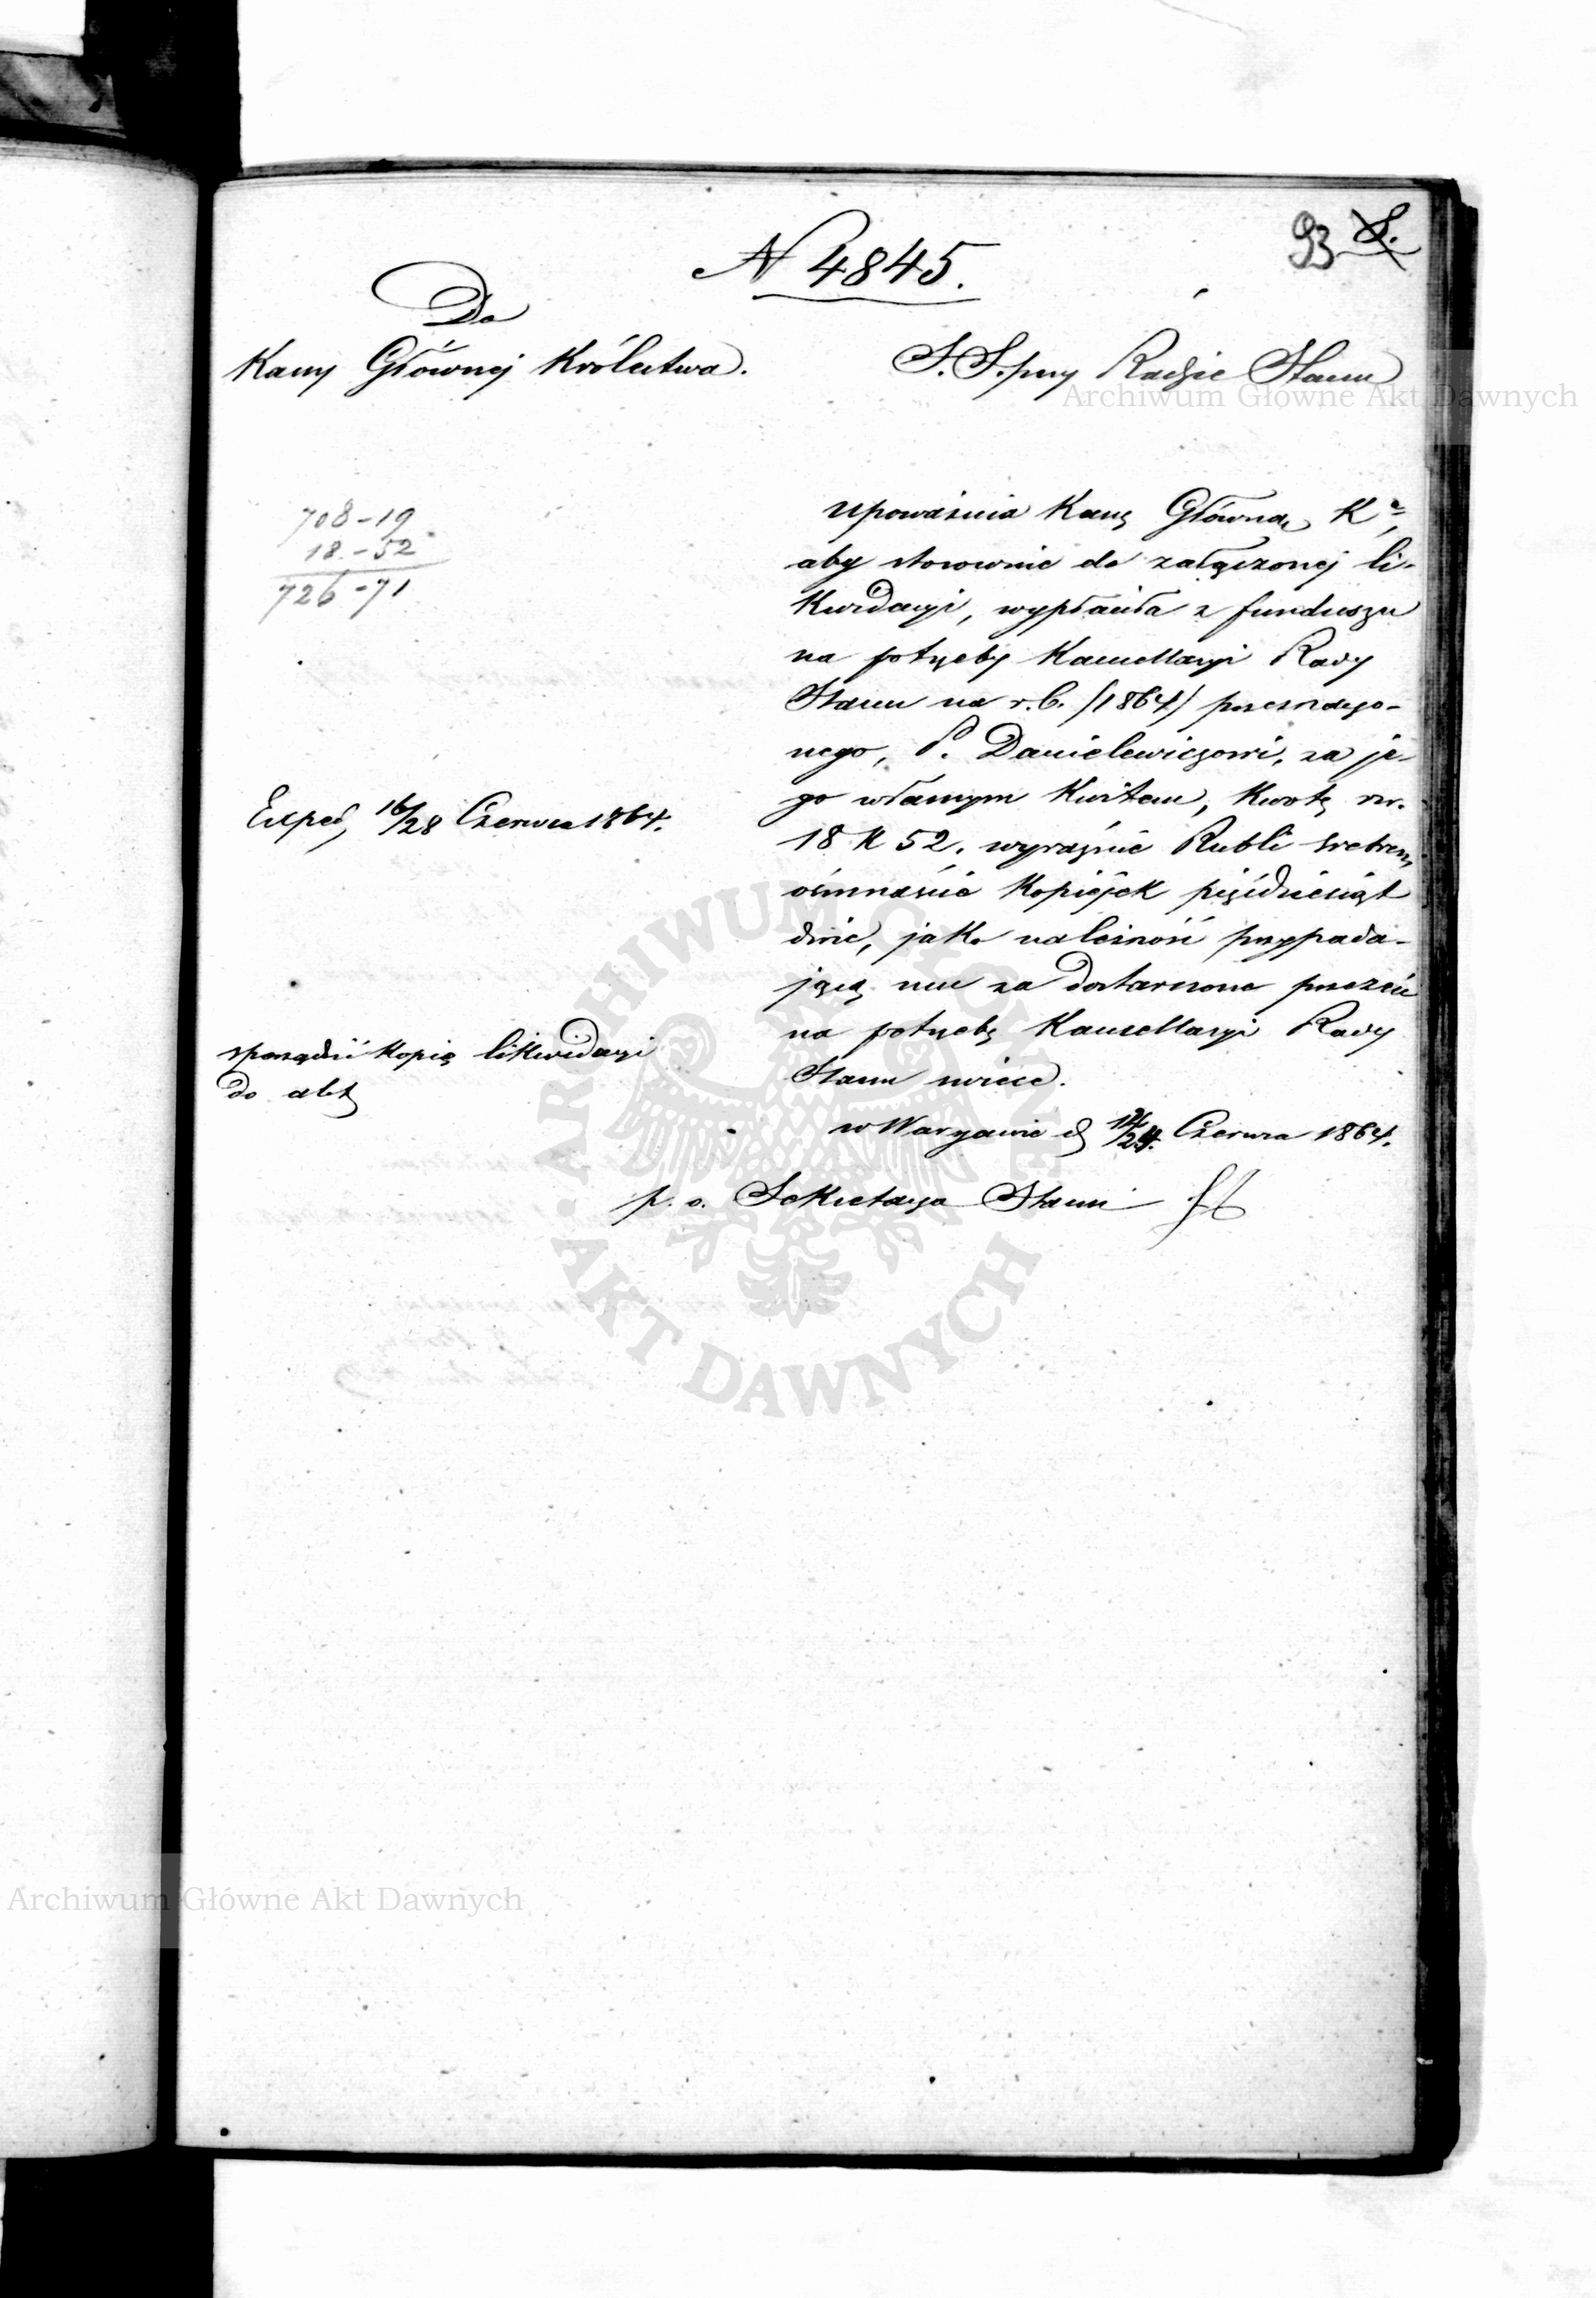 93 S.
N 4845.
Do
Kassy Głównej Królestwa.
S. S. przy Radzie Stanu
708-19
18-52
726-71
upoważnia Kassę Główną K<sup>a</sup>,
aby stosownie do załączonej li-
kwidacyi, wypłaciła z funduszu
na potrzeby Kancellaryi Rady
Stanu na r. b. /1864/ przeznaczo-
nego, P. Danielewiczowi, za je-
go własnym kwitem, kwotę rsr.
18 k 52. wyraźnie Rubli srebrem
ośmnaście kopiejek pięćdziesiąt
dwie, jako należność przypada-
jącą mu za dostarczone przezeń
na potrzebę Kancellaryi Rady
Stanu świece.
w Warszawie d 12/24. Czerwca 1864.
p. o. Sekretarza Stanu
Exped, 16/28 Czerwca 1864.
sporządzić kopię likwidacyi
do akt
Archiwum Główne Akt Dawnych
ARCHIWUM GŁÓWNE
AKT DAWNYCH
Archiwum Główne Akt Dawnych